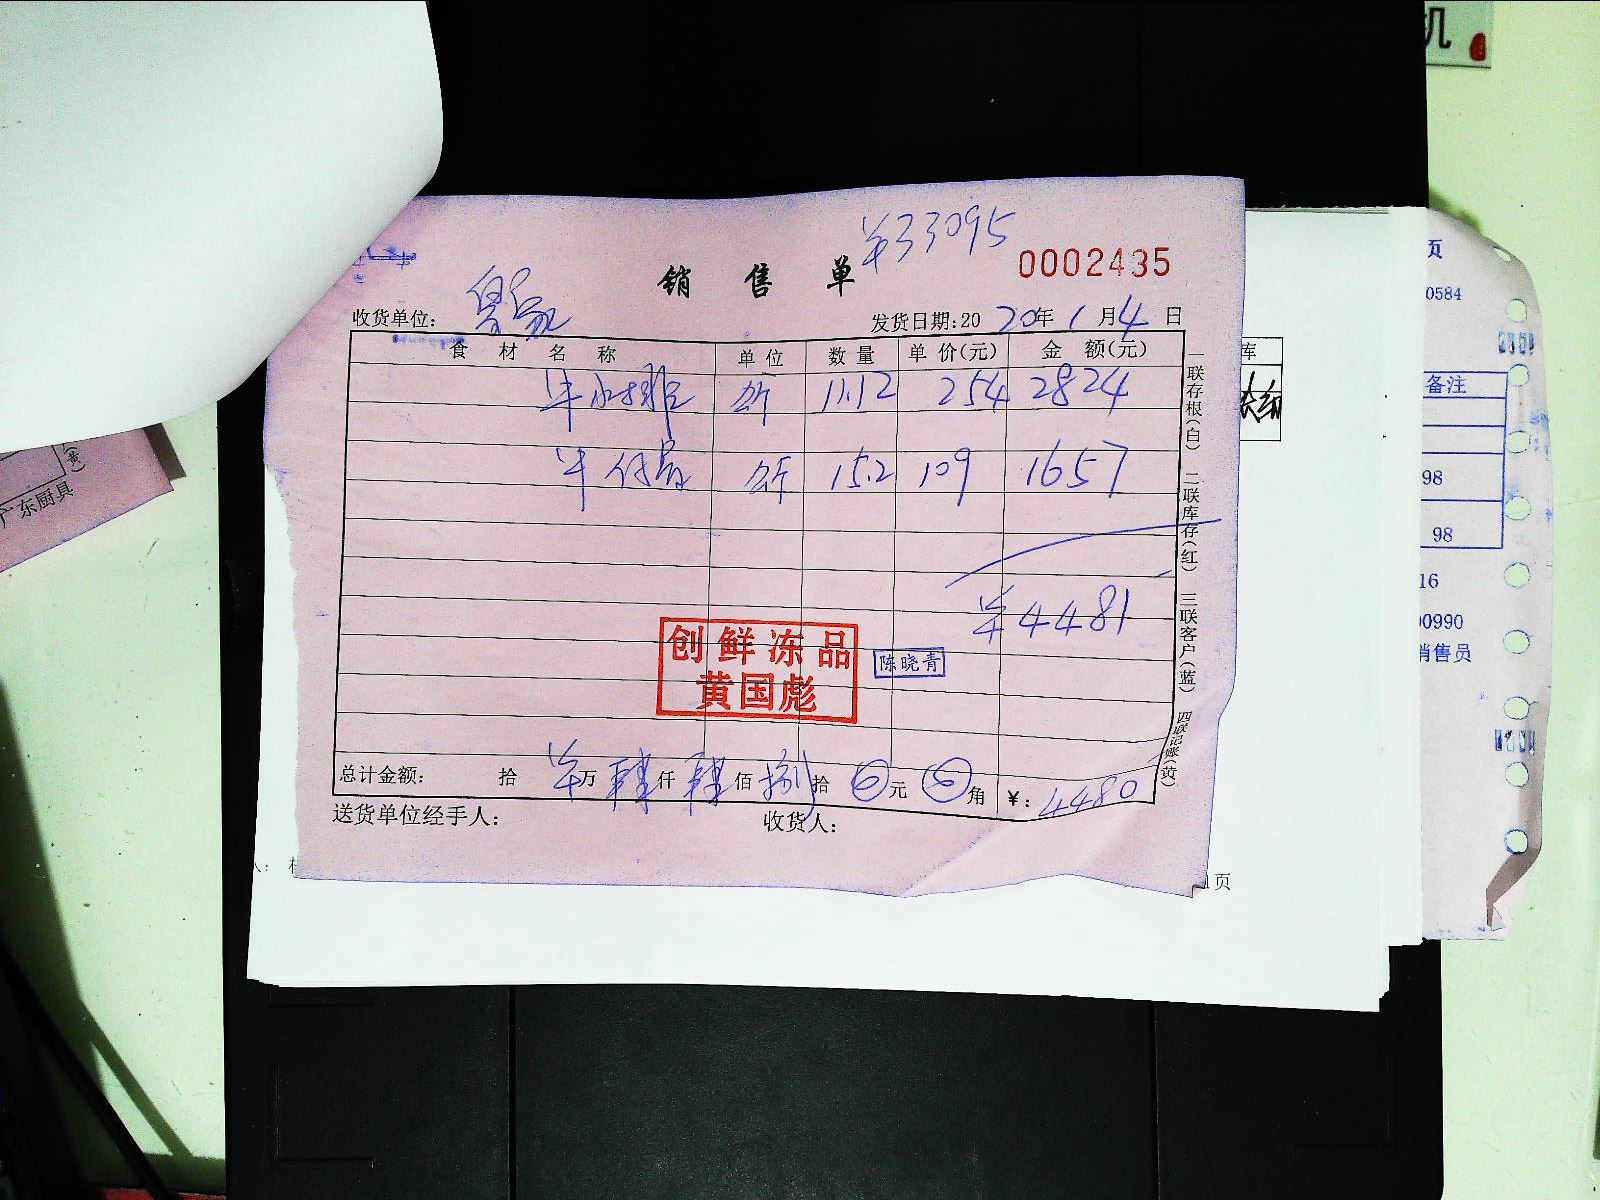 机
¥33095
销售单
0002435
收货单位：
发货日期:2020年1月4日
食材名称 单位 数量 单价(元) 金额(元)
牛小排 斤 11.12 254 2824
牛仔骨 斤 15.2 109 1657
¥4481
创鲜冻品
黄国彪
陈晓青
总计金额： 拾 ¥万 肆仟 肆佰 捌拾 0元 0角 ¥：4480
送货单位经手人： 收货人：
一联存根(白) 二联库存(红) 三联客户(蓝) 四联记账(黄)
(黄)
广东厨具
库
页
0584
备注
98
98
16
00990
销售员
1页